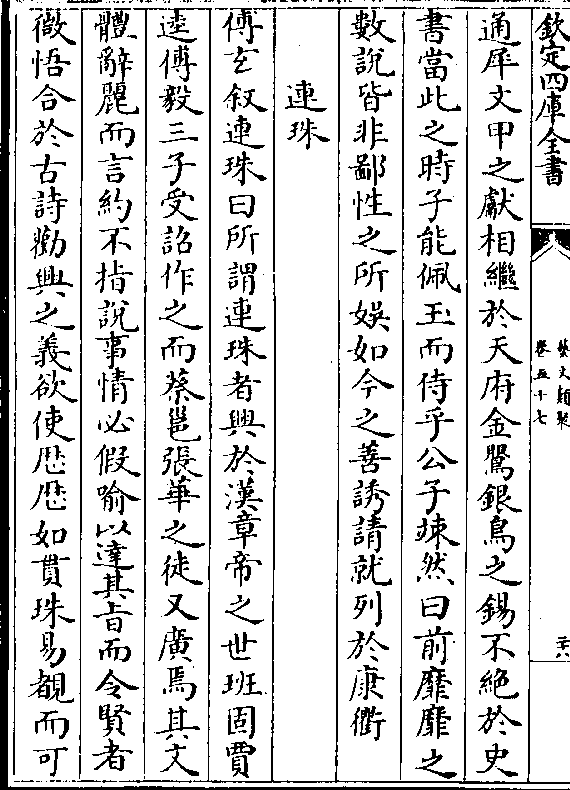 欽定四庫全書
藝文類聚
卷五十七
二六
通犀文甲之獻相繼於天府金鶚銀鳥之錫不絕於史
書當此之時子能佩玉而侍乎公子竦然曰前靡靡之
數說皆非鄙性之所娛如今之善誘請就列於康衢
連珠
傅玄叙連珠曰所謂連珠者興於漢章帝之世班固賈
逵傅毅三子受詔作之而蔡邕張華之徒又廣焉其文
體辭麗而言約不指說事情必假喻以達其旨而令賢者
微悟合於古詩勸興之義欲使歴歴如貫珠易覩而可